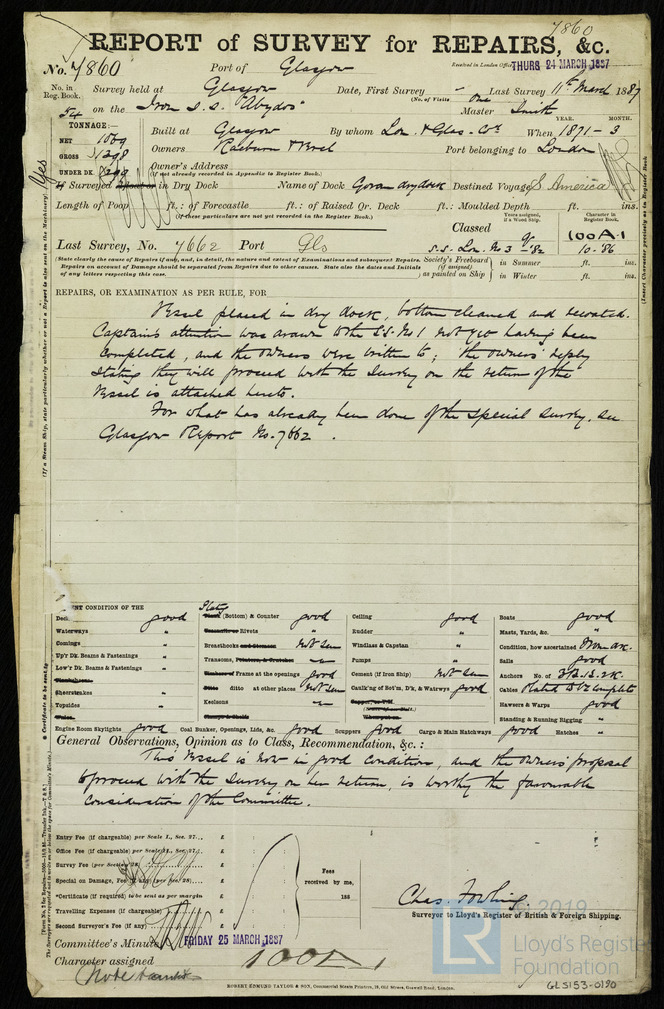 7860
REPORT of SURVEY for REPAIRS, &c.
No. 7860 Port of Glasgow Received in London Office THURS 24 MARCH 1887
No. in Reg. Book. Survey held at Glasgow Date, First Survey - Last Survey 11th March 1887
(No. of Visits One
54 on the Iron S.S. "Abydos" Master Smith
TONNAGE:—
NET 1069
GROSS 1298
UNDER DK.
Built at Glasgow By whom Lon. & Glas. Coy. When 1871 - 3
YEAR. MONTH.
Owners Raeburn & Verel Port belonging to London
Owner's Address
(if not already recorded in Appendix to Register Book.)
If Surveyed Afloat or in Dry Dock Name of Dock Govan dry dock Destined Voyage S. America
Length of Poop ft.: of Forecastle ft.: of Raised Qr. Deck ft.: Moulded Depth ft. ins.
(If these particulars are not yet recorded in the Register Book.)
Years assigned, if a Wood Ship.
Character in Register Book.
Classed 100A·1
Last Survey, No. 7662 Port Gls S.S. Lon. No 3 - 82 10.86
(State clearly the cause of Repairs if any, and, in detail, the nature and extent of Examinations and subsequent Repairs. Repairs on account of Damage should be separated from Repairs due to other causes. State also the dates and Initials of any letters respecting this case.
Society's Freeboard (if assigned) as painted on Ship
in Summer ft. ins.
in Winter ft. ins.
REPAIRS, OR EXAMINATION AS PER RULE, FOR
Vessel placed in dry dock, bottom cleaned and recoated.
Captain's attention was drawn to the S.S. No 1 not yet having been
completed, and the owners were written to; the owners' reply
stating they will proceed with the Survey on the return of the
Vessel is attached hereto.
For what has already been done of the special survey, see
Glasgow Report No. 7662.
PRESENT CONDITION OF THE
Decks good
Waterways "
Comings "
Up'r Dk. Beams & Fastenings "
Low'r Dk. Beams & Fastenings "
Sheerstrakes "
Topsides "
Plating (Bottom) & Counter good
Rivets "
Breasthooks not seen
Transoms,
Frame at the openings good
Ditto ditto at other places not seen
Keelsons
Ceiling good
Rudder "
Windlass & Capstan "
Pumps "
Cement (if Iron Ship) not seen
Caulk'g of Bot'm, D'k, & Waterways good
Boats good
Masts, Yards, &c. "
Condition, how ascertained From dk.
Sails good
Anchors No. of 3B.1S.2K.
Cables Stated to be complete
Hawsers & Warps good
Standing & Running Rigging "
Engine Room Skylights good Coal Bunker, Openings, Lids, &c. good Scuppers good Cargo & Main Hatchways good Hatches "
General Observations, Opinion as to Class, Recommendation, &c.:
This Vessel is now in good condition, and the owners' proposal
to proceed with the Survey on her return, is worthy the favourable
consideration of the Committee.
Entry Fee (if chargeable) per Scale I., Sec. 27... £
Office Fee (if chargeable) per Scale II., Sec. 27... £
Survey Fee (per Section 28) £
Special on Damage, Fee if any (per Sec. 28)... £
*Certificate (if required) to be sent as per margin
Travelling Expenses (if chargeable) £
Second Surveyor's Fee (if any) £
Fees received by me,
188
Chas. Fowling
Surveyor to Lloyd's Register of British & Foreign Shipping.
Committee's Minute FRIDAY 25 MARCH, 1887
Character assigned 100A1
ROBERT EDMUND TAYLOR & SON, Commercial Steam Printers, 19, Old Street, Goswell Road, London.
© 2019
LR
Lloyd's Register
Foundation
GLS153-0190